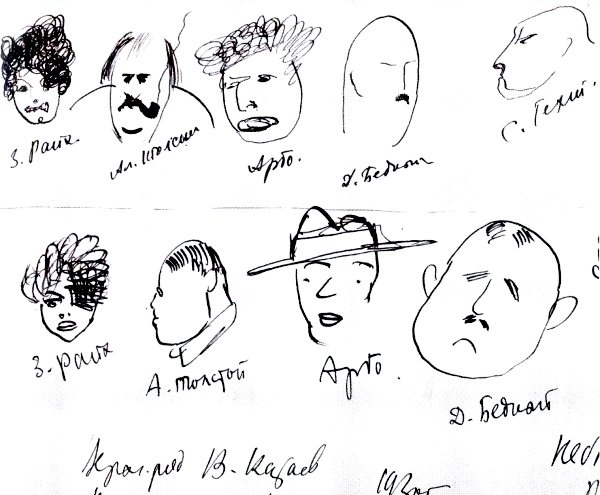 З. Райх
Ал. Толстой
Арго.
Д. Бедный
С. Гехт.
З. Райх
А. Толстой
Арго.
Д. Бедный
В. Катаев